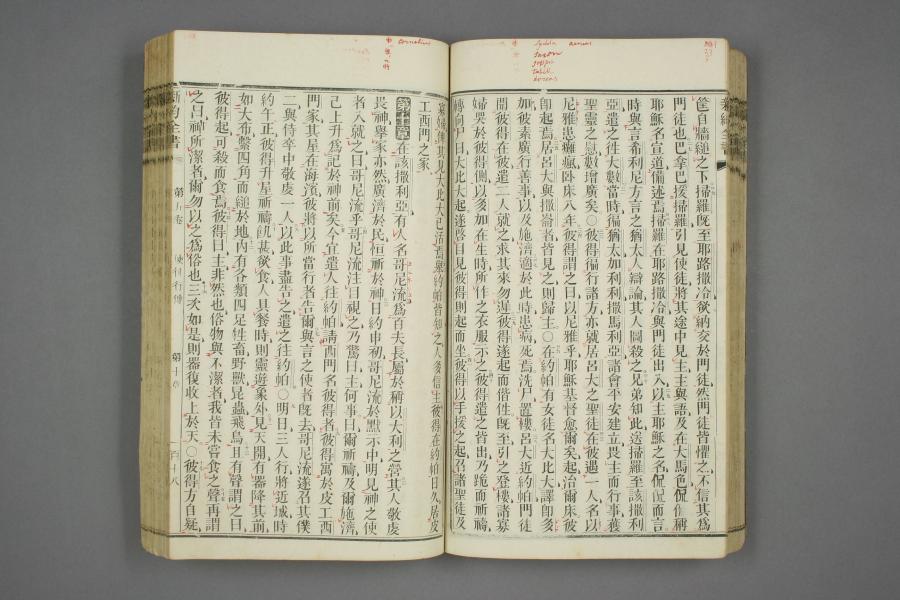 Lydda Aeneas
Saron
Joppa
Tabith
Dorcas
筐自牆縋之下掃羅旣至耶路撒冷欲納交於門徒然門徒皆懼之不信其爲
門徒也巴拿巴援掃羅引見使徒將其途中見主主與語及在大馬色侃侃作稱
耶穌名宣道備述焉掃羅在耶路撒冷與門徒出入以主耶穌之名侃侃而言
時與言希利尼方言之猶太人辯論其人圖殺之兄弟知此送掃羅至該撒利
亞遣之往大數當時徧猶太加利利撒馬利亞諸會平安建立畏主而行事獲
聖靈之慰數增廣矣○彼得徧行諸方亦就居呂大之聖徒在彼遇一人名以
尼雅患癱瘋卧床八年彼得謂之曰以尼雅乎耶穌基督愈爾矣起治爾床彼
卽起焉居呂大與撒崙者皆見之則歸主○在約帕有女徒名大比大譯卽多
加彼素廣行善事以及施濟適於此時患病死焉洗尸置樓呂大近約帕門徒
聞彼得在彼遣二人就之求其來勿遲彼得遂起而偕往旣至引之登樓諸寡
婦哭於彼得側以多加在生時所作之衣服示之彼得遣之皆出乃跪而祈禱
轉向尸曰大比大起遂啓目見彼得則起而坐彼得以手援之起召諸聖徒及
Cornelius
寡婦使其見大比大已活焉舉約帕皆知之人多信主彼得在約帕日久居皮
工西門之家
第十章在該撒利亞有人名哥尼流爲百夫長屬於稱以大利之營其人敬虔
畏神舉家亦然廣濟於民恒祈於神日約申初哥尼流於默示中明見神之使
者入就之曰哥尼流乎哥尼流注目視之乃驚曰主何事曰爾祈禱及爾施濟
已上升爲記於神前矣今宜遣人往約帕請西門名彼得者彼得寓於皮工西
門家其屋在海濱彼將以所當行者告爾與言之使者旣去哥尼流遂召其僕
二與侍卒中敬虔一人以此事盡告之遣之往約帕○明日三人行將近城時
約午正彼得升屋祈禱飢甚欲食人具餐時則靈遊象外見天開有器降其前
如大布繫四角而縋於地內有各類四足牲畜野獸昆蟲飛鳥且有聲謂之曰
彼得起可殺而食焉彼得曰主非然也俗物與不潔者我皆未嘗食之聲再謂
之曰神所潔者爾勿以之爲俗也三次如是則器復收上於天○彼得方自疑
新約全書 第五卷 使徒行傳 第十章 一百十八